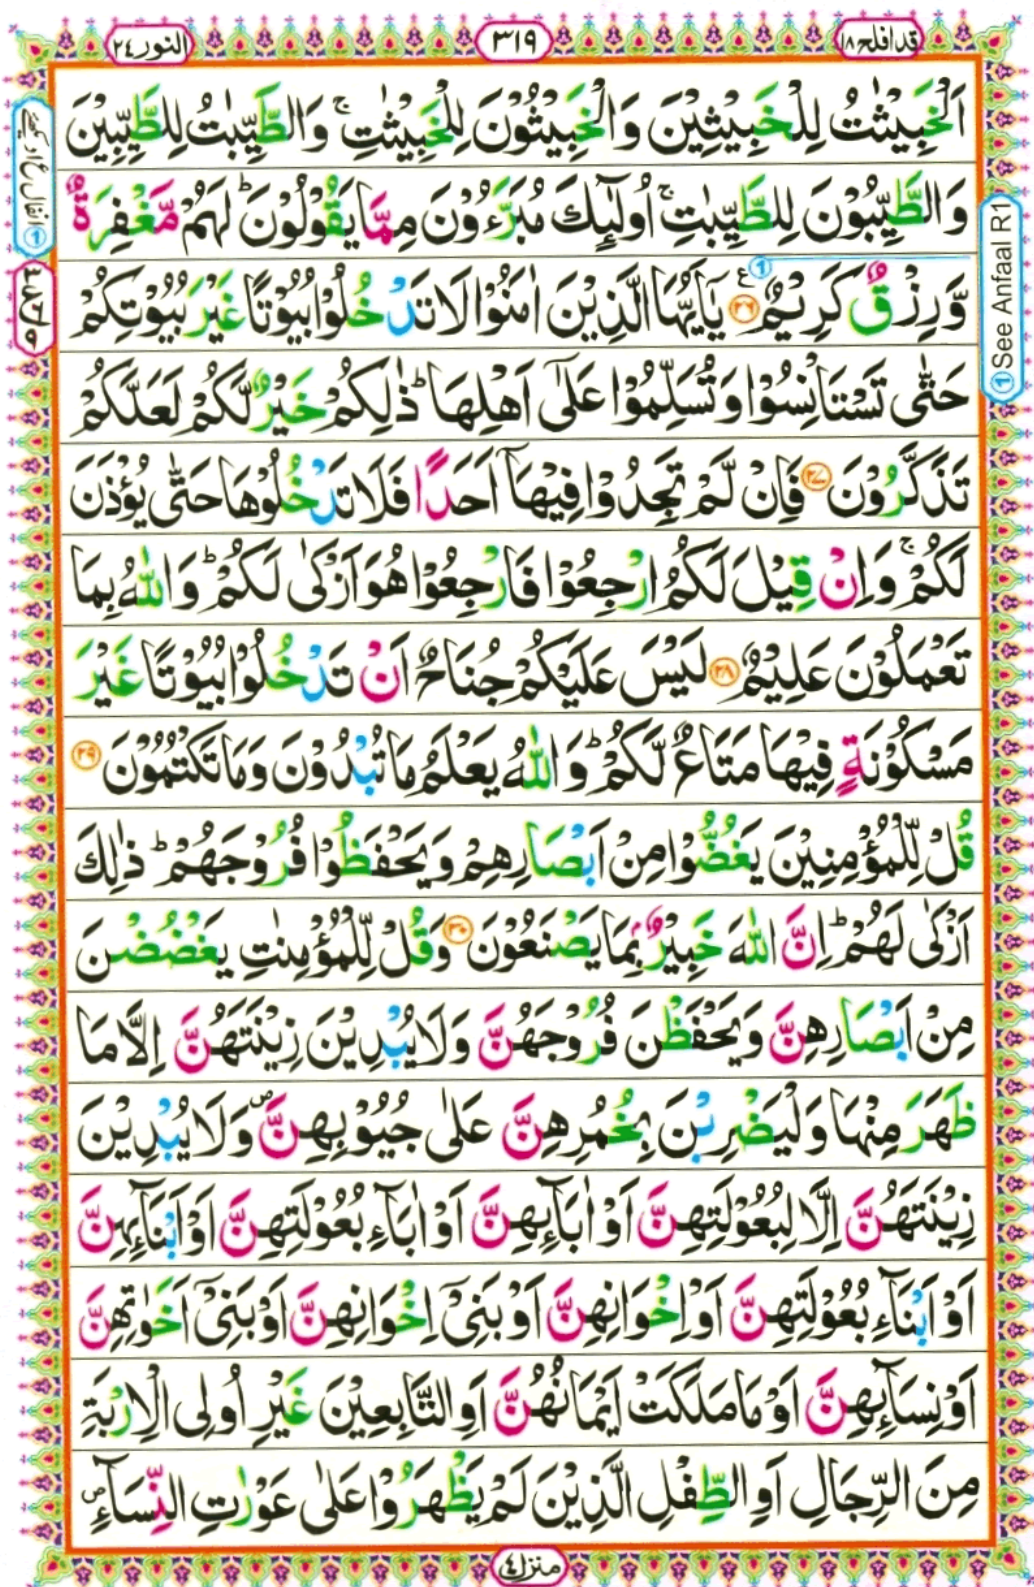 قد افلح ١٨
٣١٩
النور ٢٤
اَلْخَبِيْثٰتُ لِلْخَبِيْثِيْنَ وَالْخَبِيْثُوْنَ لِلْخَبِيْثٰتِ ۚ وَالطَّيِّبٰتُ لِلطَّيِّبِيْنَ
وَالطَّيِّبُوْنَ لِلطَّيِّبٰتِ ۚ اُولٰٓئِكَ مُبَرَّءُوْنَ مِمَّا يَقُوْلُوْنَ ؕ لَهُمْ مَّغْفِرَةٌ
وَّرِزْقٌ كَرِيْمٌ ۧ ① ﴿٢٦﴾ يٰۤاَيُّهَا الَّذِيْنَ اٰمَنُوْا لَا تَدْخُلُوْا بُيُوْتًا غَيْرَ بُيُوْتِكُمْ
حَتّٰى تَسْتَاْنِسُوْا وَتُسَلِّمُوْا عَلٰٓى اَهْلِهَا ؕ ذٰلِكُمْ خَيْرٌ لَّكُمْ لَعَلَّكُمْ
تَذَكَّرُوْنَ ﴿٢٧﴾ فَاِنْ لَّمْ تَجِدُوْا فِيْهَاۤ اَحَدًا فَلَا تَدْخُلُوْهَا حَتّٰى يُؤْذَنَ
لَكُمْ ۚ وَاِنْ قِيْلَ لَكُمُ ارْجِعُوْا فَارْجِعُوْا هُوَ اَزْكٰى لَكُمْ ؕ وَاللّٰهُ بِمَا
تَعْمَلُوْنَ عَلِيْمٌ ﴿٢٨﴾ لَيْسَ عَلَيْكُمْ جُنَاحٌ اَنْ تَدْخُلُوْا بُيُوْتًا غَيْرَ
مَسْكُوْنَةٍ فِيْهَا مَتَاعٌ لَّكُمْ ؕ وَاللّٰهُ يَعْلَمُ مَا تُبْدُوْنَ وَمَا تَكْتُمُوْنَ ﴿٢٩﴾
قُلْ لِّلْمُؤْمِنِيْنَ يَغُضُّوْا مِنْ اَبْصَارِهِمْ وَيَحْفَظُوْا فُرُوْجَهُمْ ؕ ذٰلِكَ
اَزْكٰى لَهُمْ ؕ اِنَّ اللّٰهَ خَبِيْرٌۢ بِمَا يَصْنَعُوْنَ ﴿٣٠﴾ وَقُلْ لِّلْمُؤْمِنٰتِ يَغْضُضْنَ
مِنْ اَبْصَارِهِنَّ وَيَحْفَظْنَ فُرُوْجَهُنَّ وَلَا يُبْدِيْنَ زِيْنَتَهُنَّ اِلَّا مَا
ظَهَرَ مِنْهَا وَلْيَضْرِبْنَ بِخُمُرِهِنَّ عَلٰى جُيُوْبِهِنَّ ۪ وَلَا يُبْدِيْنَ
زِيْنَتَهُنَّ اِلَّا لِبُعُوْلَتِهِنَّ اَوْ اٰبَآئِهِنَّ اَوْ اٰبَآءِ بُعُوْلَتِهِنَّ اَوْ اَبْنَآئِهِنَّ
اَوْ اَبْنَآءِ بُعُوْلَتِهِنَّ اَوْ اِخْوَانِهِنَّ اَوْ بَنِىْۤ اِخْوَانِهِنَّ اَوْ بَنِىْۤ اَخَوٰتِهِنَّ
اَوْ نِسَآئِهِنَّ اَوْ مَا مَلَكَتْ اَيْمَانُهُنَّ اَوِ التَّابِعِيْنَ غَيْرِ اُولِى الْاِرْبَةِ
مِنَ الرِّجَالِ اَوِ الطِّفْلِ الَّذِيْنَ لَمْ يَظْهَرُوْا عَلٰى عَوْرٰتِ النِّسَآءِ ۪
منزل ٤
① See Anfaal R1